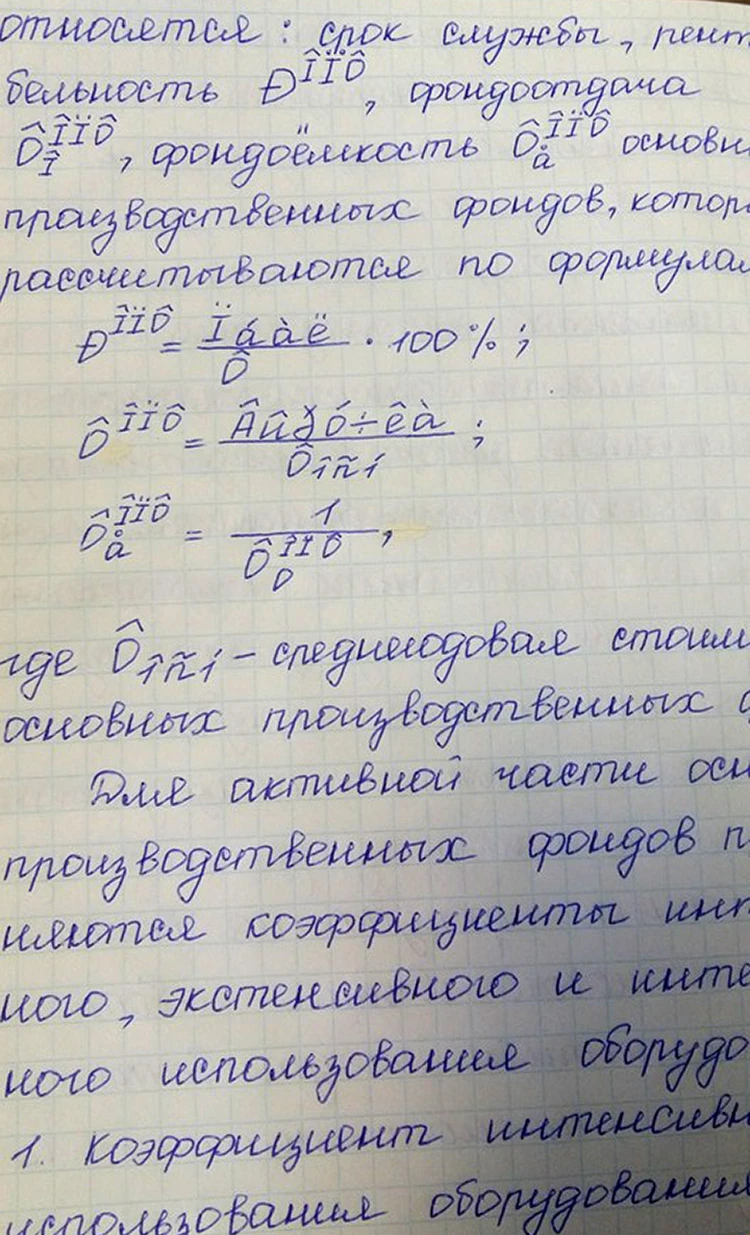 относятся: срок службы, рент
бельность Ð^ÎÏÔ, фондоотдача
Ô_Î^ÎÏÔ, фондоёмкость Ô_å^ÎÏÔ основн
производственных фондов, котор
рассчитываются по формулам
Ð^ÎÏÔ = Ïáàë / Ô · 100%;
Ô^ÎÏÔ = Âûðó÷êà / Ôîñí;
Ô_å^ÎÏÔ = 1 / Ô_О^ÎÏÔ,
где Ôîñí – среднегодовая стоим
основных производственных ф
Для активной части осн
производственных фондов п
няются коэффициенты инт
ного, экстенсивного и инте
ного использования оборудо
1. Коэффициент интенсивн
использования оборудования